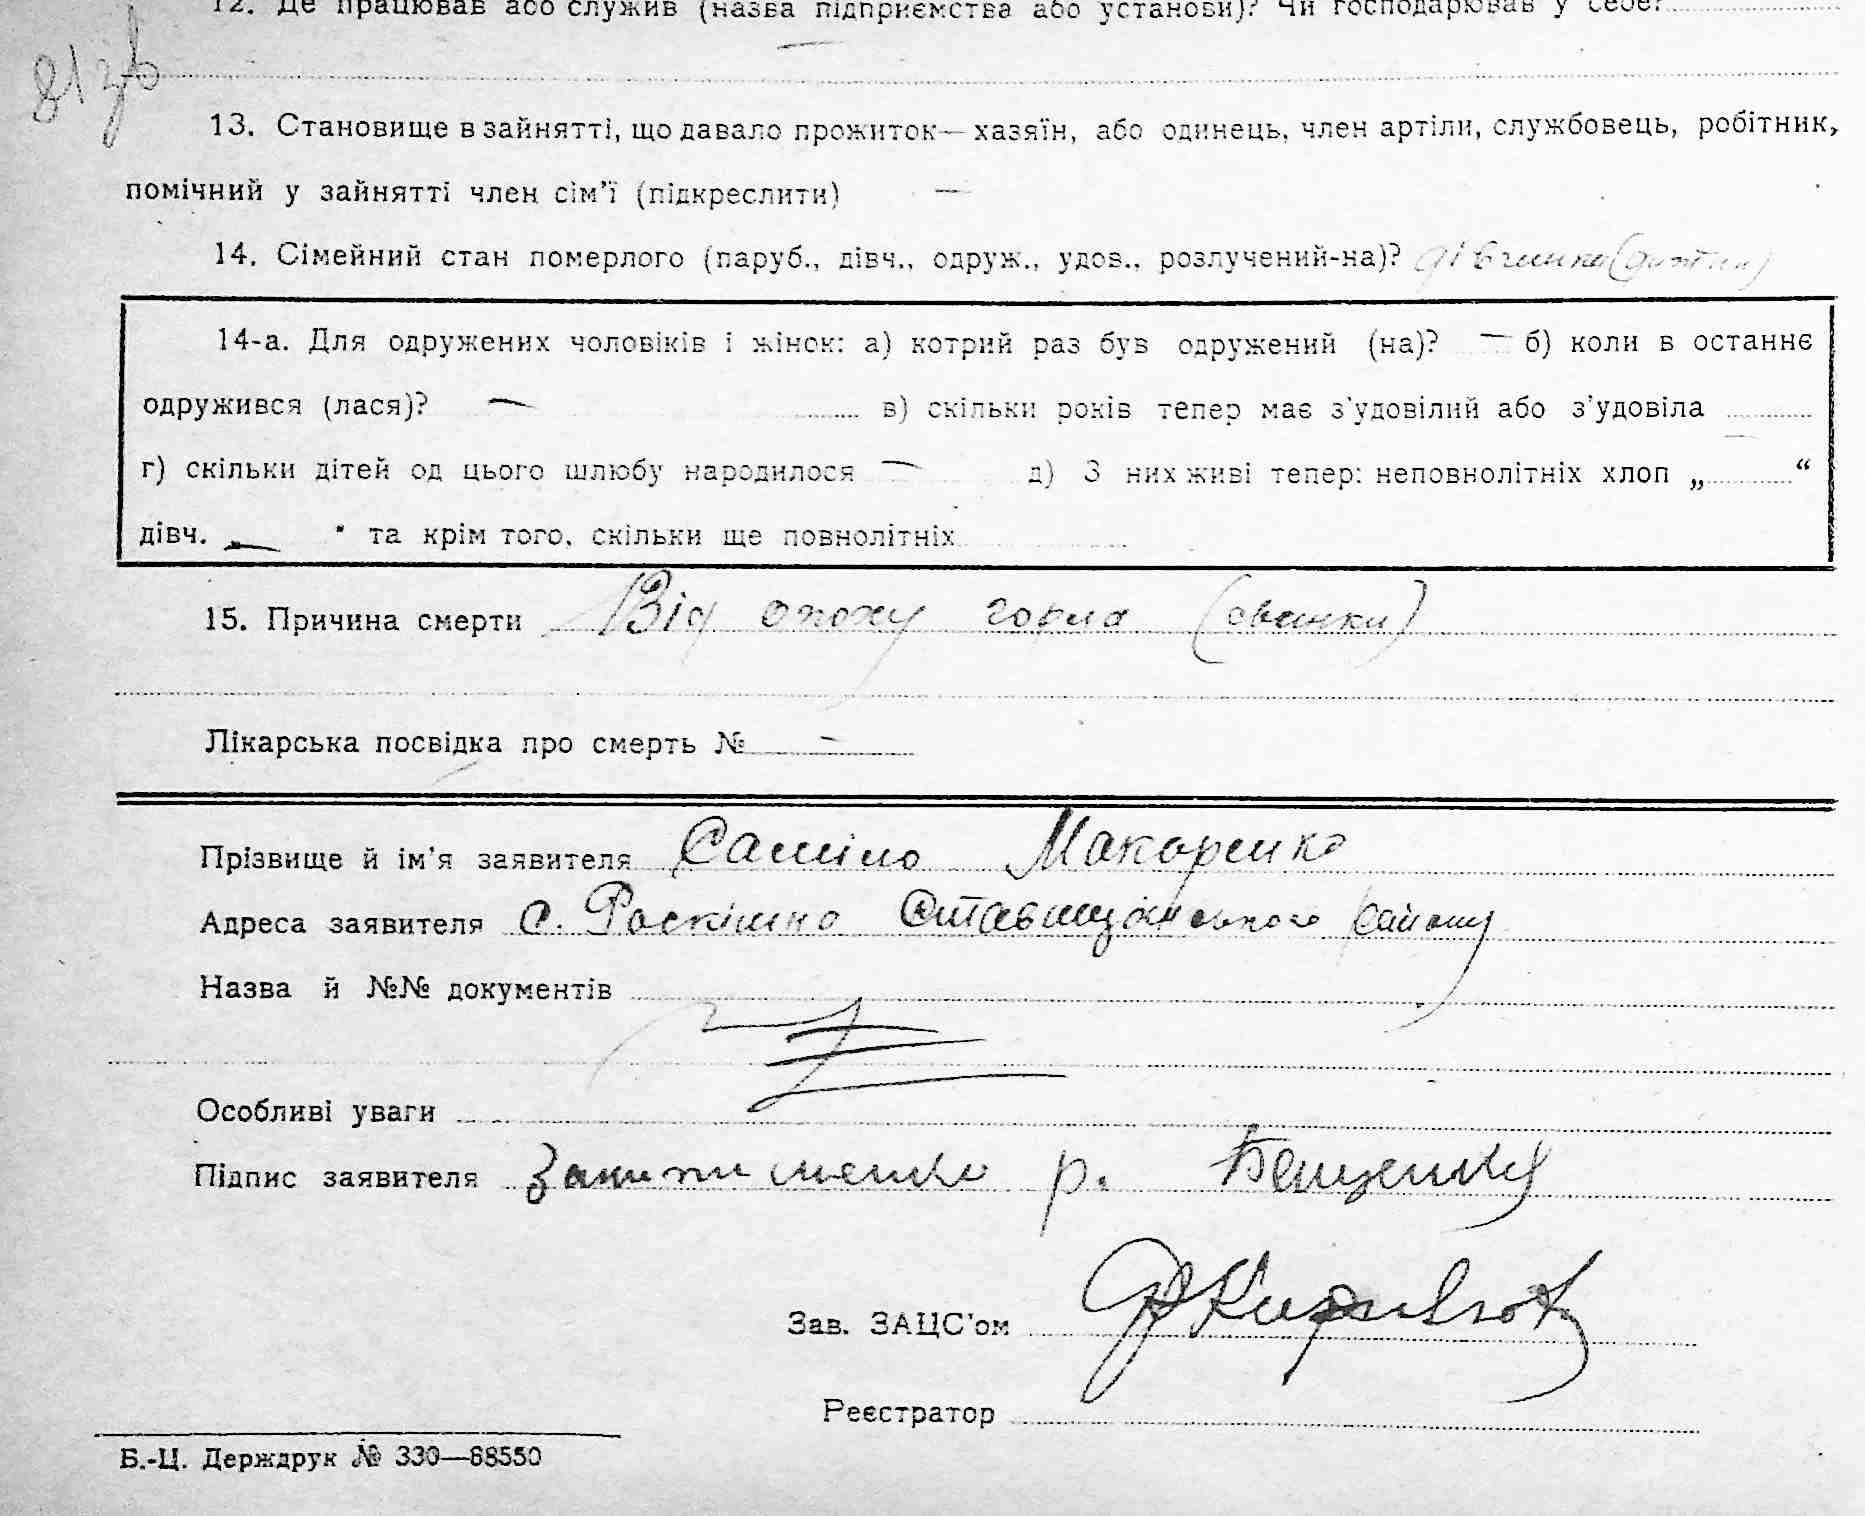 12. Де працював або служив (назва підприємства або установи)? Чи господарював у себе?
81 зв
13. Становище в зайнятті, що давало прожиток — хазяїн, або одинець, член артіли, службовець, робітник,
помічний у зайнятті член сім'ї (підкреслити) —
14. Сімейний стан померлого (паруб., дівч., одруж., удов., розлучений-на)? дівчинка (дитина)
14-а. Для одружених чоловіків і жінок: а) котрий раз був одружений (на)? — б) коли в останнє
одружився (лася)? — в) скільки років тепер має з'удовілий або з'удовіла
г) скільки дітей од цього шлюбу народилося — д) З них живі тепер: неповнолітніх хлоп „ “
дівч. „ — " та крім того, скільки ще повнолітніх
15. Причина смерти Від опоху горла (свинки)
Лікарська посвідка про смерть № —
Прізвище й ім'я заявителя Макаренко
Адреса заявителя с. Роскішна Ставищанського району
Назва й №№ документів
Особливі уваги
Підпис заявителя р.
Зав. ЗАЦС'ом
Реєстратор
Б.-Ц. Держдрук № 330—68550